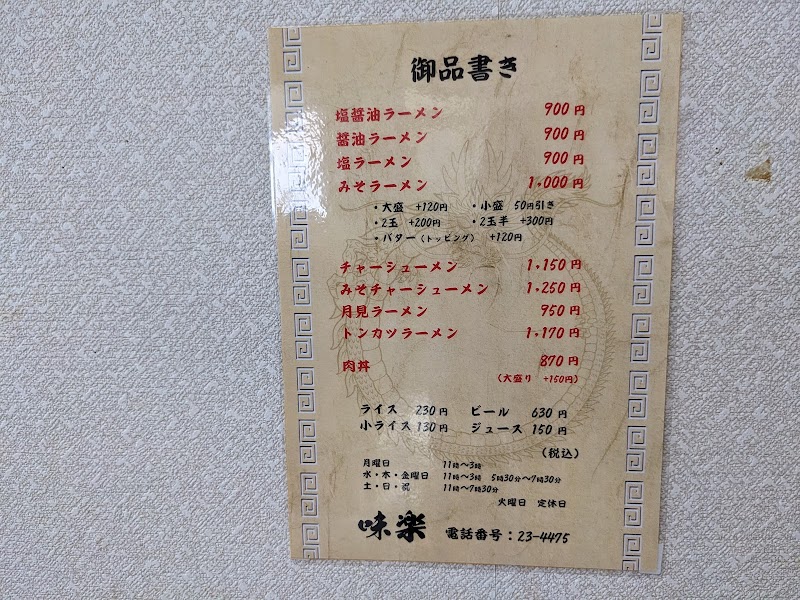 御品書き
塩醤油ラーメン 900円
醤油ラーメン 900円
塩ラーメン 900円
みそラーメン 1,000円
・大盛 +120円 ・小盛 50円引き
・2玉 +200円 ・2玉半 +300円
・バター(トッピング) +120円
チャーシューメン 1,150円
みそチャーシューメン 1,250円
月見ラーメン 950円
トンカツラーメン 1,170円
肉丼 870円
(大盛り +150円)
ライス 230円 ビール 630円
小ライス 130円 ジュース 150円
(税込)
月曜日 11時~3時
水・木・金曜日 11時~3時 5時30分~7時30分
土・日・祝 11時~7時30分
火曜日 定休日
味楽 電話番号:23-4475